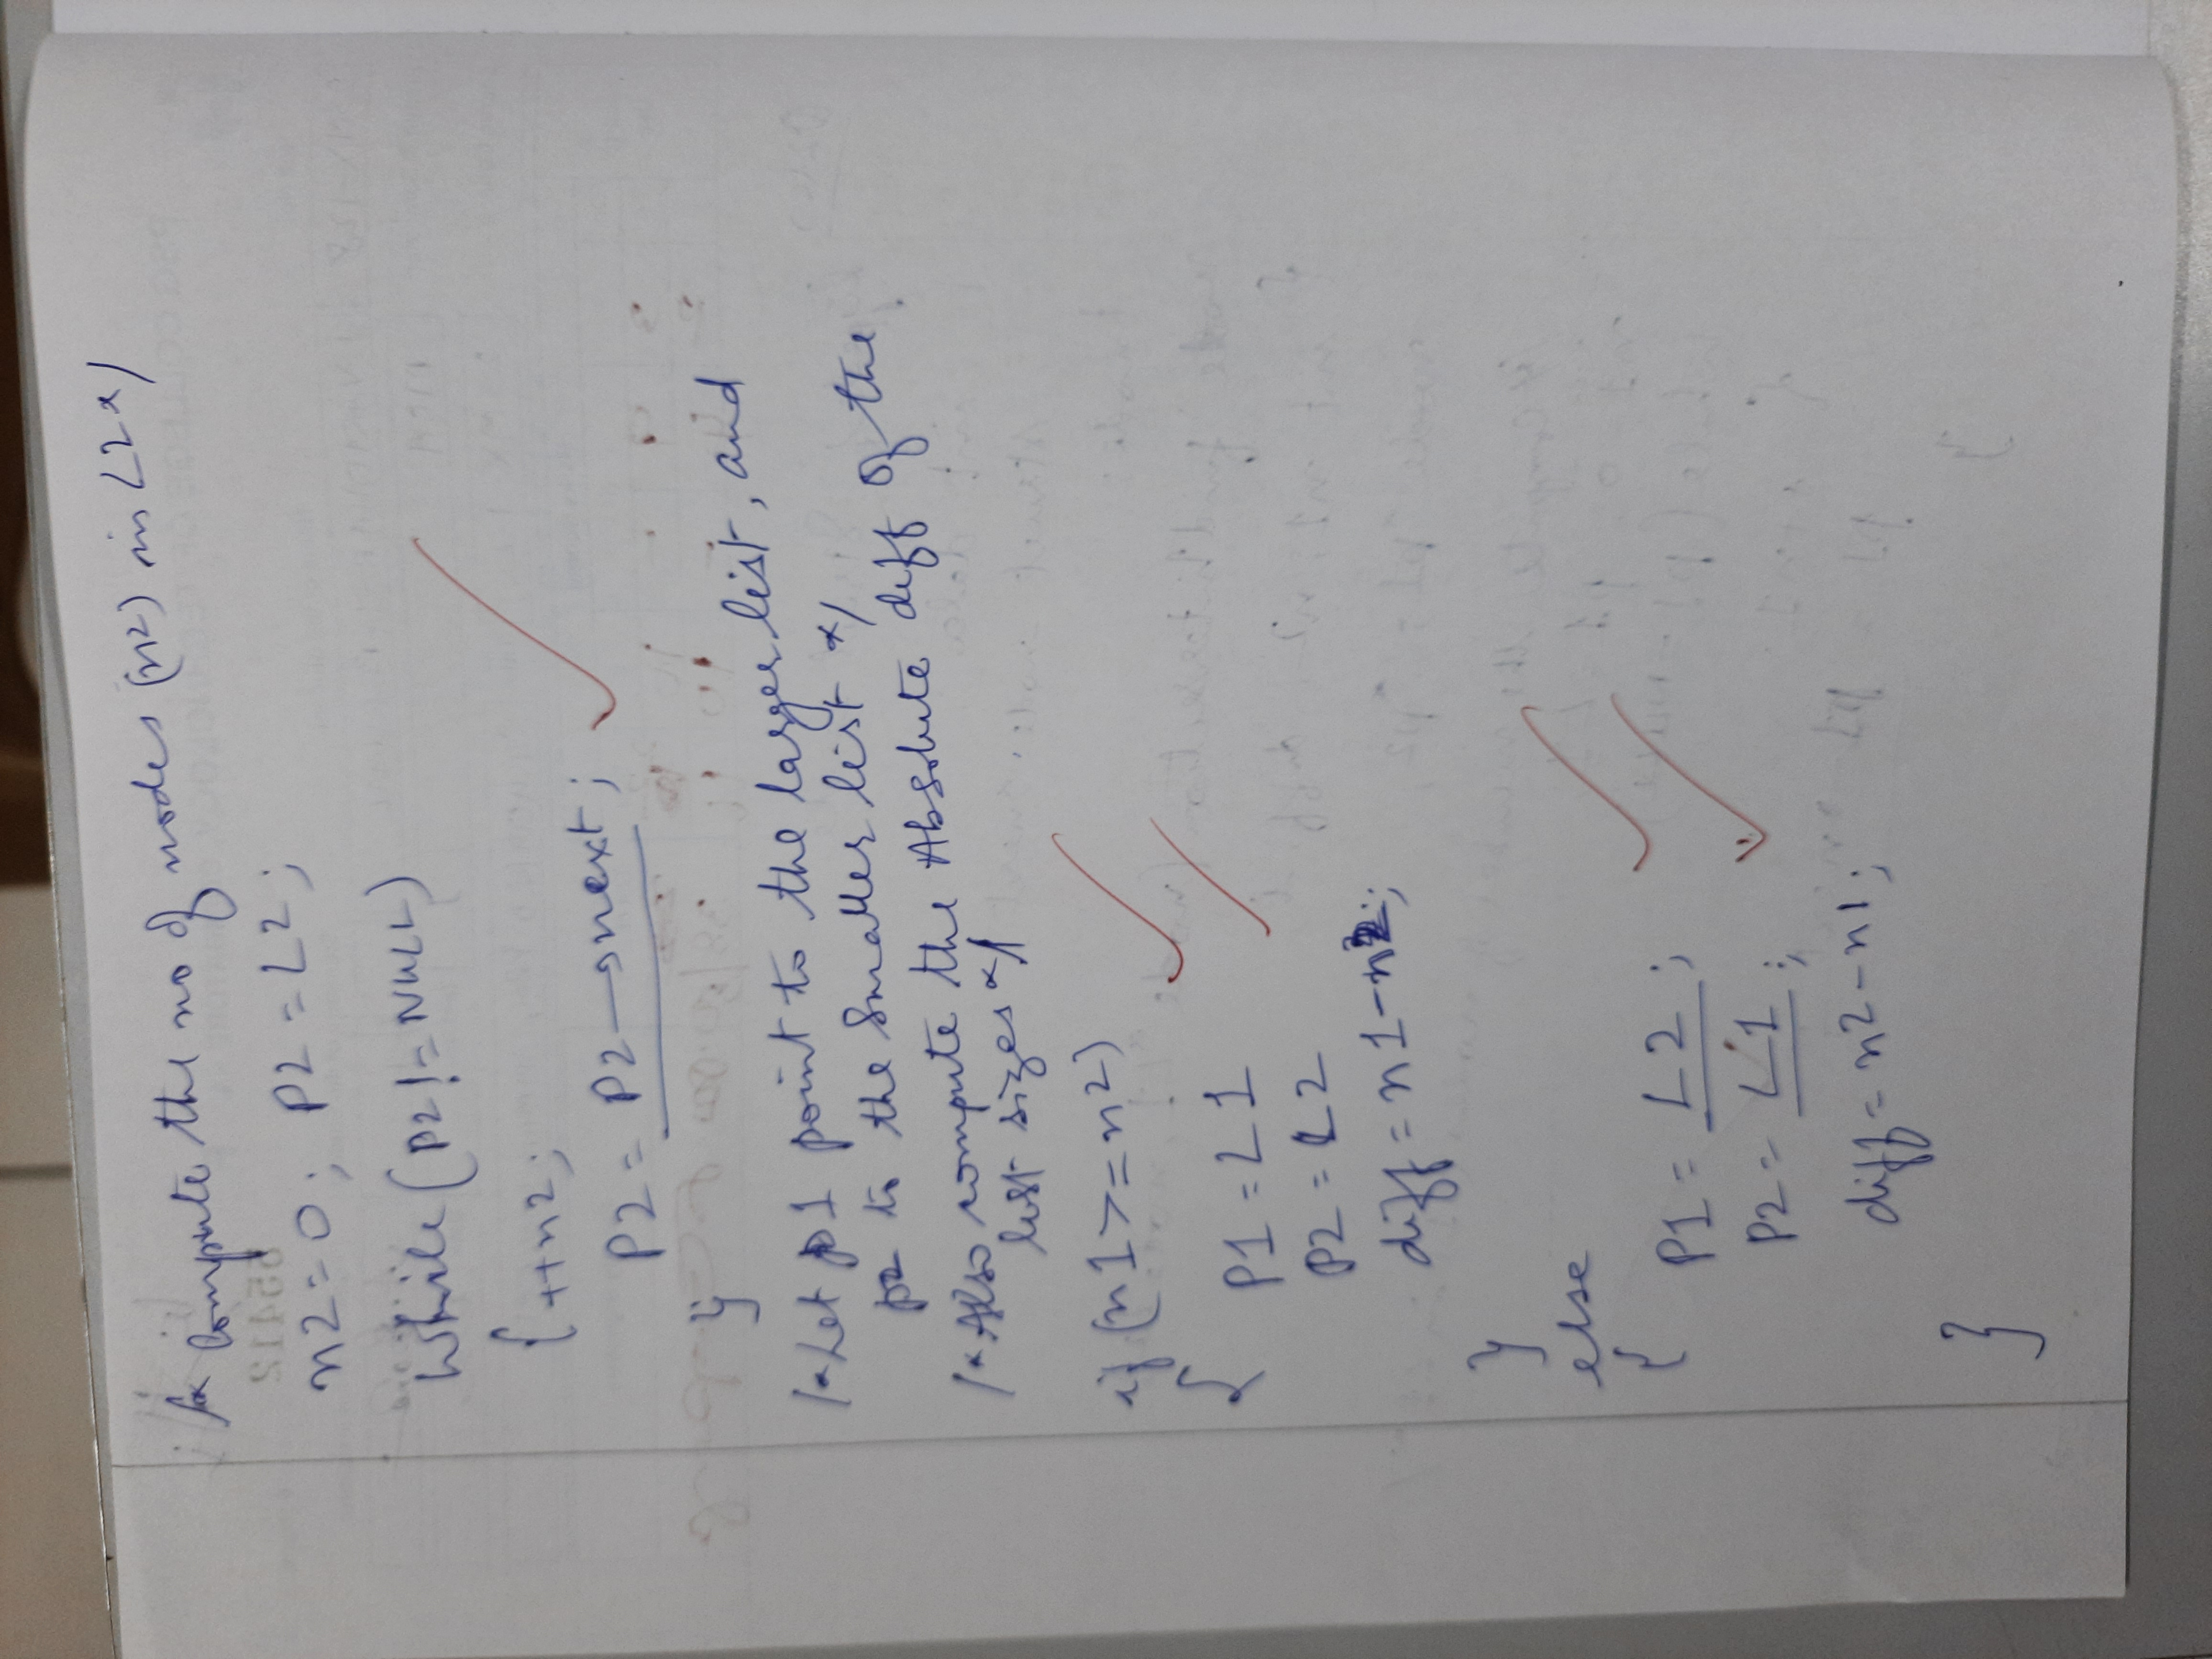 /* Compute the no of nodes (n2) in L2 */
n2 = 0; P2 = L2;
While (P2 != NULL)
{ ++n2;
P2 = P2 → next;
}
/* Let p1 point to the larger list, and
p2 to the Smaller list */
/* Also compute the Absolute diff of the
list sizes */
if (n1 >= n2)
{
P1 = L1
P2 = L2
diff = n1 - n2;
}
else
{
P1 = L2;
P2 = L1;
diff = n2 - n1;
}